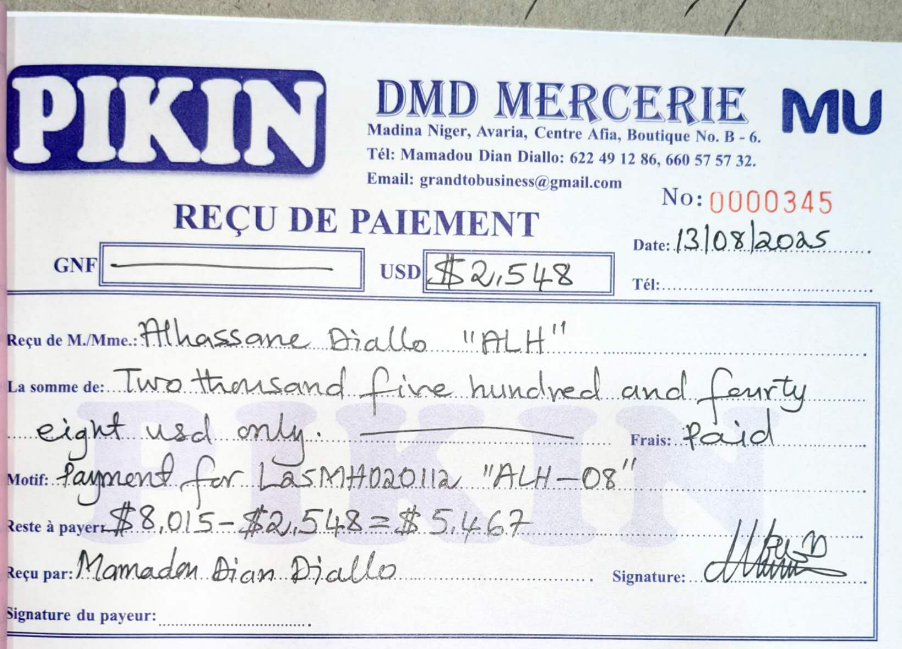 PIKIN
DMD MERCERIE
MU
Madina Niger, Avaria, Centre Afia, Boutique No. B - 6.
Tél: Mamadou Dian Diallo: 622 49 12 86, 660 57 57 32.
Email: grandtobusiness@gmail.com
No: 0000345
REÇU DE PAIEMENT
Date: 13/08/2025
GNF
USD $2,548
Tél:
Reçu de M./Mme.: Alhassane Diallo "ALH"
La somme de: Two thousand five hundred and fourty
eight usd only. Frais: Paid
Motif: Payment for L25MH020112 "ALH-08"
Reste à payer: $8,015-$2,548=$5,467
Reçu par: Mamadou Dian Diallo Signature:
Signature du payeur:
PIKIN